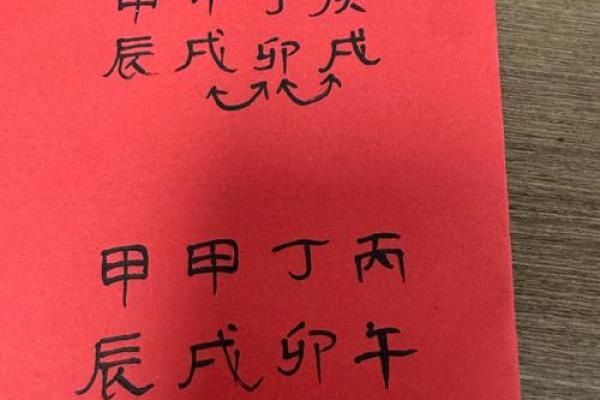 辰戌卯戌
甲甲丁丙
辰戌卯午